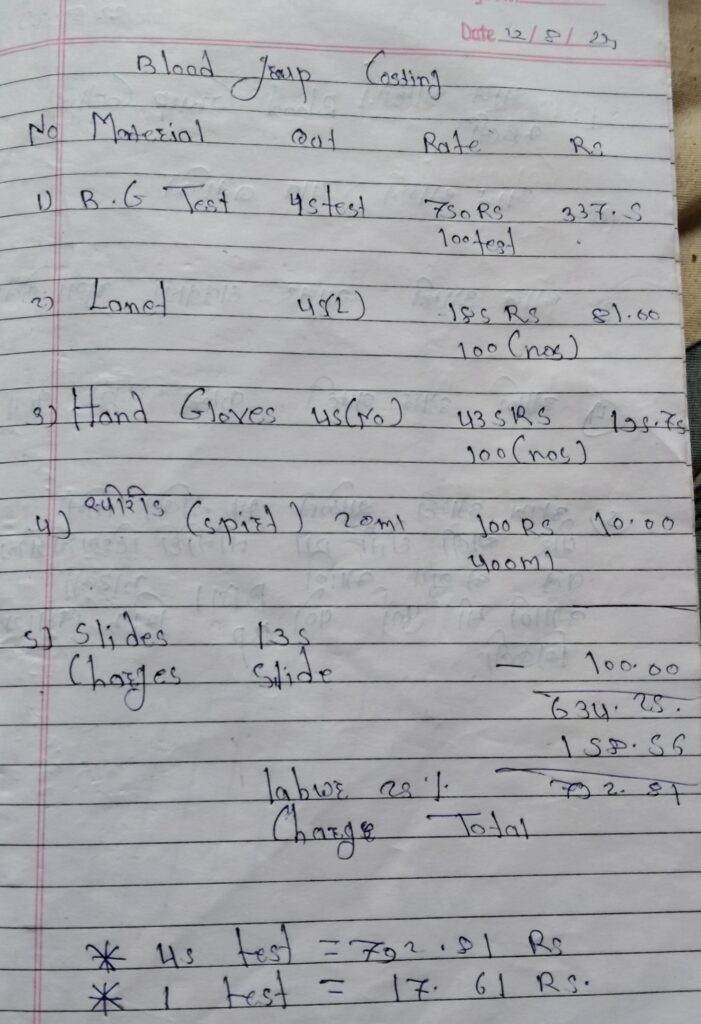 Date 12/8/23,
Blood Group Costing
No Material Out Rate Rs
1) B.G Test 45 test 750 RS 337.5
100 test
2) Lancet 45(2) 185 RS 81.00
100 (nos)
3) Hand Gloves 45(No) 435 RS 195.75
100 (nos)
4) સ્પીરીટ (spirt) 20ml 200 RS 10.00
400ml
5) Slides 135 — 100.00
Charges Slide
634.25.
158.56
labur 25 % 792.81
Charge Total
* 45 test = 792.81 RS
* 1 test = 17.61 RS.